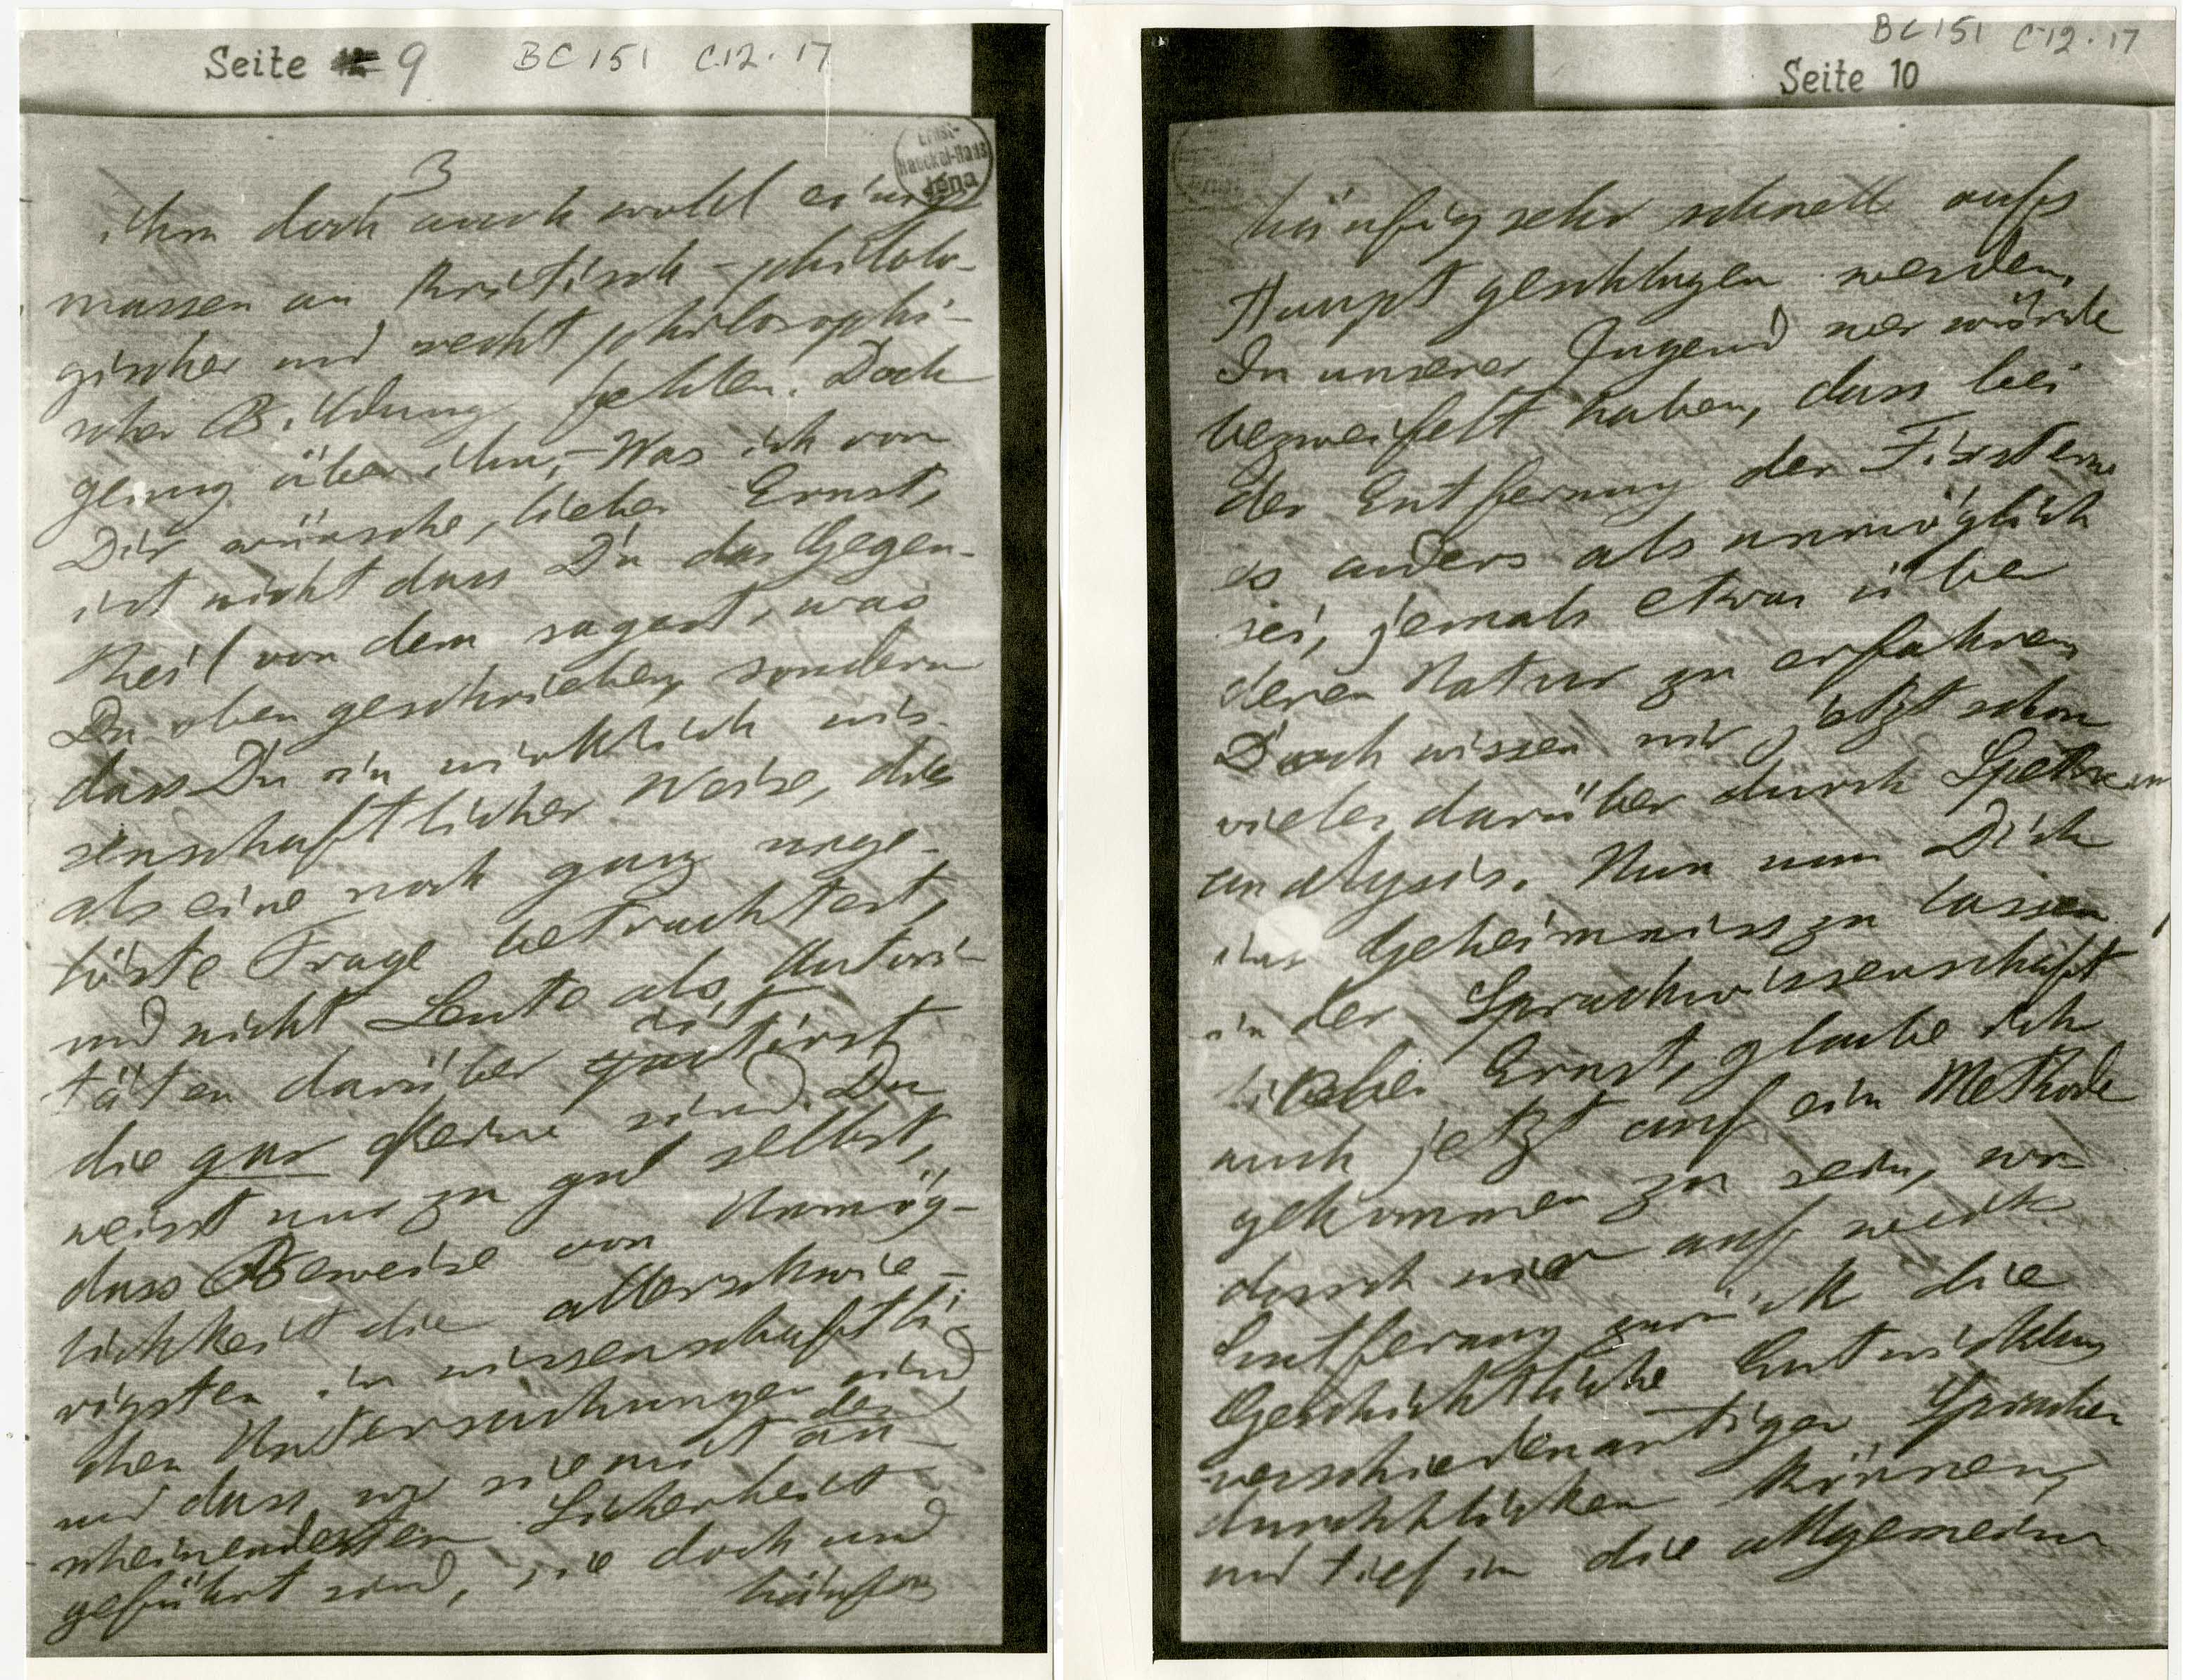 Seite 9 BC151 C12.17
Ernst-
Haeckel-Haus
Jena
3
ihm doch auch wohl einiger
massen an kritisch-philolo-
gischer und recht philosophi-
scher Bildung fehlten. Doch
genug über ihn,- Was ich von
Dir wünsche, lieber Ernst,
ist nicht dass Du das Gegen-
theil von dem sagest, was
Du oben geschrieben, sondern
dass Du in wirklich wis-
senschaftlicher Weise, dies
als eine noch ganz unge-
löste Frage betrachtest,
und nicht Leute als Autori-
täten darüber citirst
die gar keine sind. Du
weisst nur zu gut selbst,
dass Beweise von Unmög-
lichkeit die allerschwie-
rigsten in wissenschaftli-
chen Untersuchungen sind
und dass, wo sie mit der an-
scheinendesten Sicherheit
geführt sind, sie doch und
häufig
BC151 C12.17
Seite 10
häufig sehr schnell aufs
Haupt geschlagen werden.
In unserer Jugend wer würde
bezweifelt haben, dass bei
der Entfernung der Fixsterne
es anders als unmöglich
sei, jemals etwas über
deren Natur zu erfahren
Doch wissen wir jetzt schon
vieles darüber durch Spektrum
analysis. Nun um Dich
ins Geheimniss zu lassen
in der Sprachwissenschaft
lieber Ernst, glaube ich
auch jetzt auf ein Methode
gekommen zu sein, wo-
durch wir auf weite
Entfernung zurück die
Geschichtliche Entwicklung
verschiedenartiger Sprachen
durchblicken können,
und tief in die allgemeine